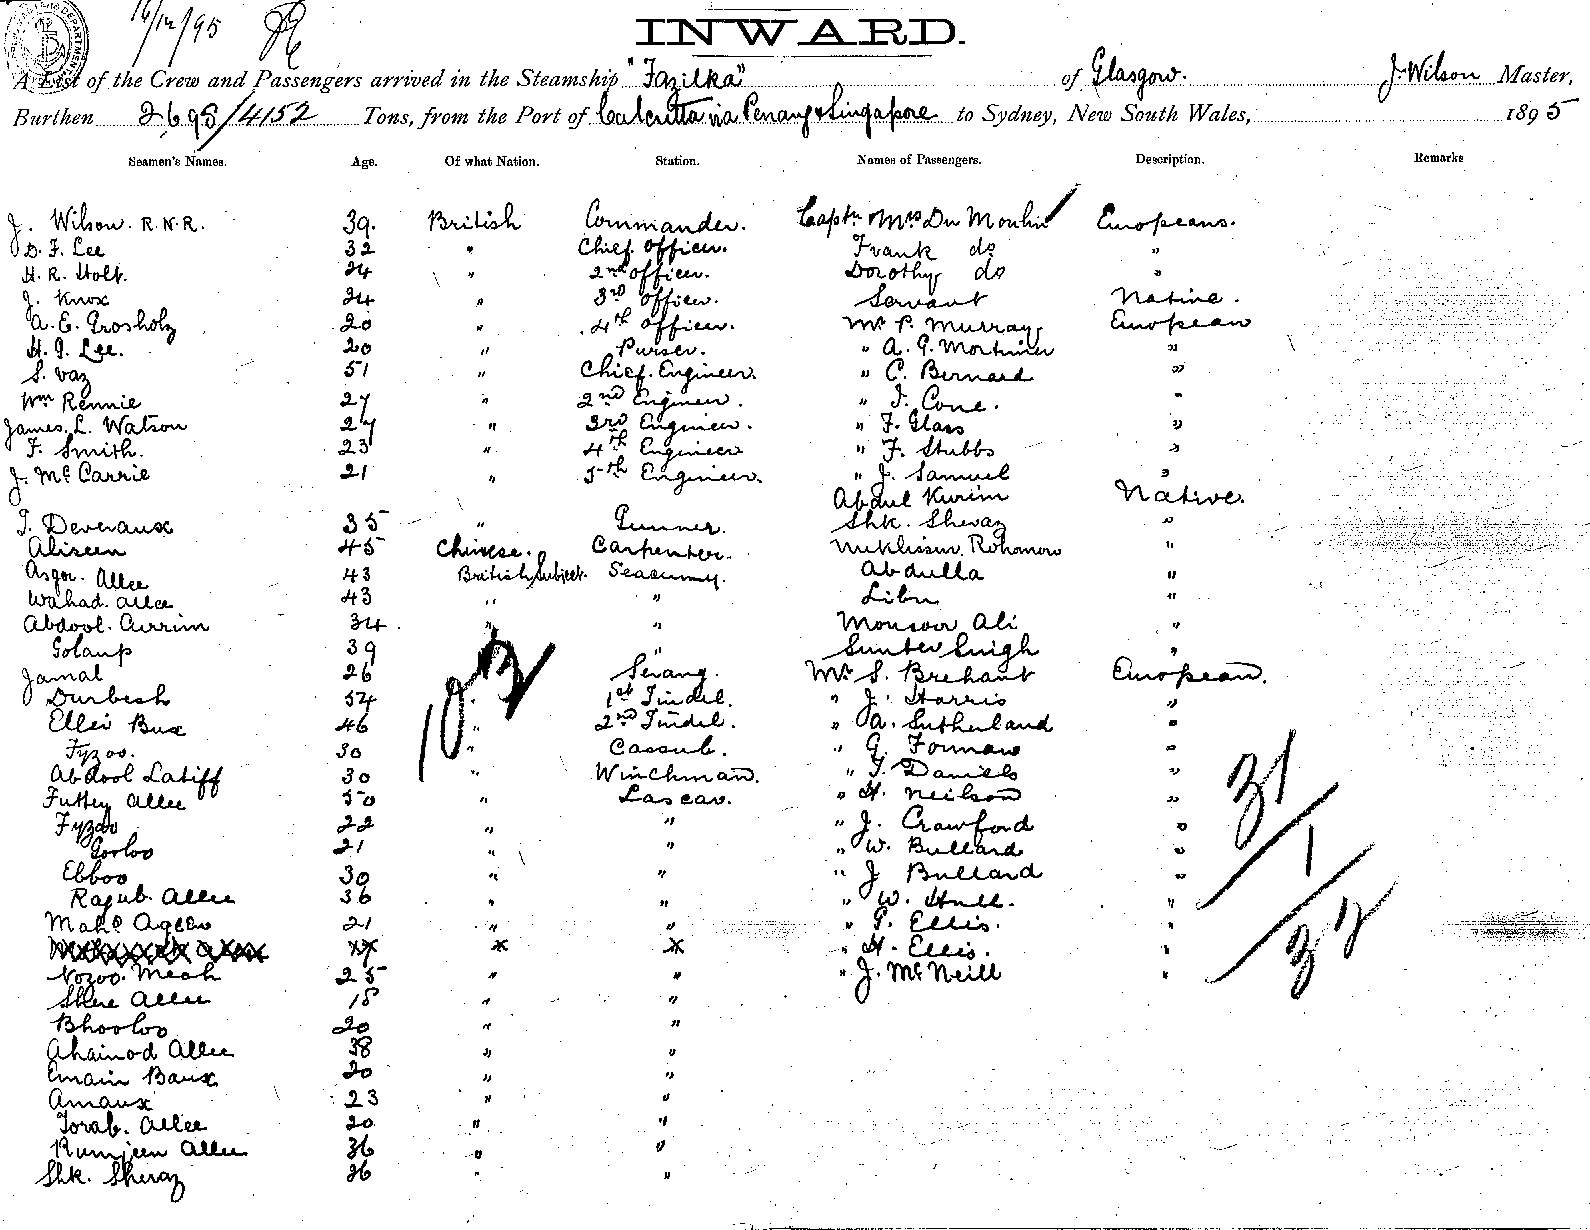 16/12/95
INWARD.
A List of the Crew and Passengers arrived in the Steamship "Fazilka" of Glasgow. J. Wilson Master,
Burthen 2695/4152 Tons, from the Port of Calcutta via Penang & Singapore to Sydney, New South Wales, 1895
Seamen's Names. Age. Of what Nation. Station. Names of Passengers. Description. Remarks
J. Wilson. R.N.R. 39. British Commander. Captn Mrs Du Moulin Europeans.
D. F. Lee 32 " Chief officer. Frank do "
H. R. Holt. 24 " 2nd officer. Dorothy do "
J. Knox 24 " 3rd officer. Servant Native.
A. E. Grosholz 20 " 4th officer. Mr P. Murray European
H. G. Lee. 20 " Purser. " A. G. Mortimer "
S. Vaz 51 " Chief. Engineer. " C. Bernard "
Wm Rennie 27 " 2nd Engineer. " J. Cone. "
James. L. Watson 27 " 3rd Engineer. " F. Glass "
F. Smith. 23 " 4th Engineer " F. Stubbs "
J. McCarrie 21 " 5th Engineer. " J. Samuel "
Abdul Kurim Native.
T. Deveraux 35 " Gunner. Shk. Sheraz "
Aliseen 45 Chinese. Carpenter. Rohomow "
Asgor. Allee 43 British Subject. Seacunny. Abdulla "
Wahad. Allee 43 " " "
Abdool. Currim 34. " " Monsoor Ali "
Golaup 39 " Sunter Singh "
Jamal 26 Serang. Mr S. Brehaut European.
Durbesh 54 " 1st Tindel. " J. Harris "
Ellei Bux 46 " 2nd Tindel. " A. Sutherland "
Fyzoo. 30 " Cassub. " G. Forman "
Abdool Latiff 30 " Winchman. " T. Daniels "
Futtey Allee 50 " Lascar. " H. Neilson "
Fyzoo 22 " " " J. Crawford "
Gooloo 21 " " " W. Bullard "
Ebboo 30 " " " J Bullard "
Rajub. Allee 36 " " " W. Hull. "
Mahd Agloo 21 " " P. Ellis. "
" H. Ellis. "
Nozoo. Meah 25 " " " J. McNeill "
Shere Allee 18 " "
Bhooloo 20 " "
Ahainod Allee 38 " "
Emain Baux 20 " "
Amaux 23 " "
Torab. Allee 20 " "
Rumjeen Allee 36 " "
Shk. Sheraz 26 " "
31
1
32